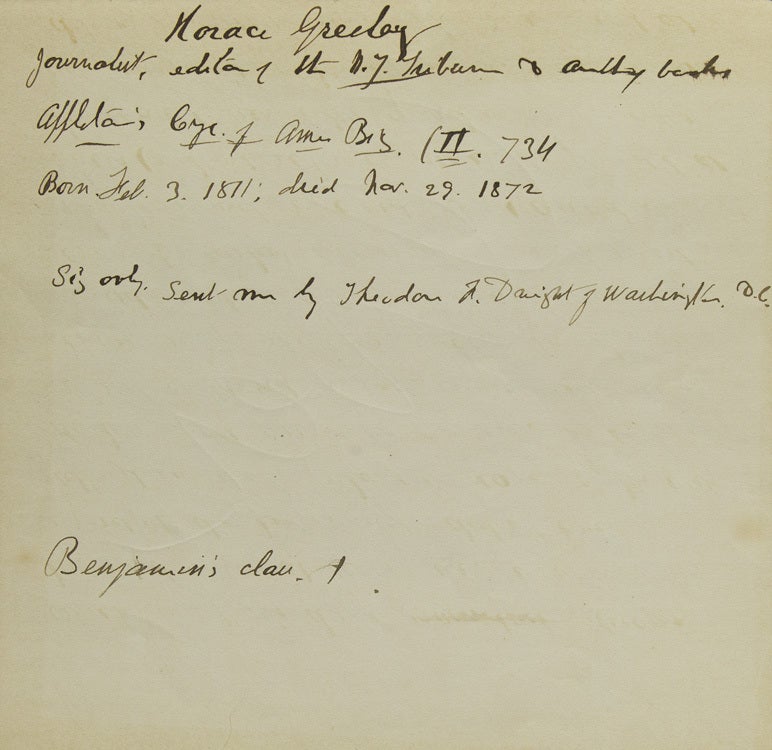 Horace Greeley
Journalist, editor of the N.Y. Tribune & author of books
Appleton's Cyc. of Amer Biog. (II. 734
Born Feb. 3. 1811; died Nov. 29. 1872
Sig only. Sent me by Theodore F. Dwight of Washington, D.C.
Benjamin's clau.